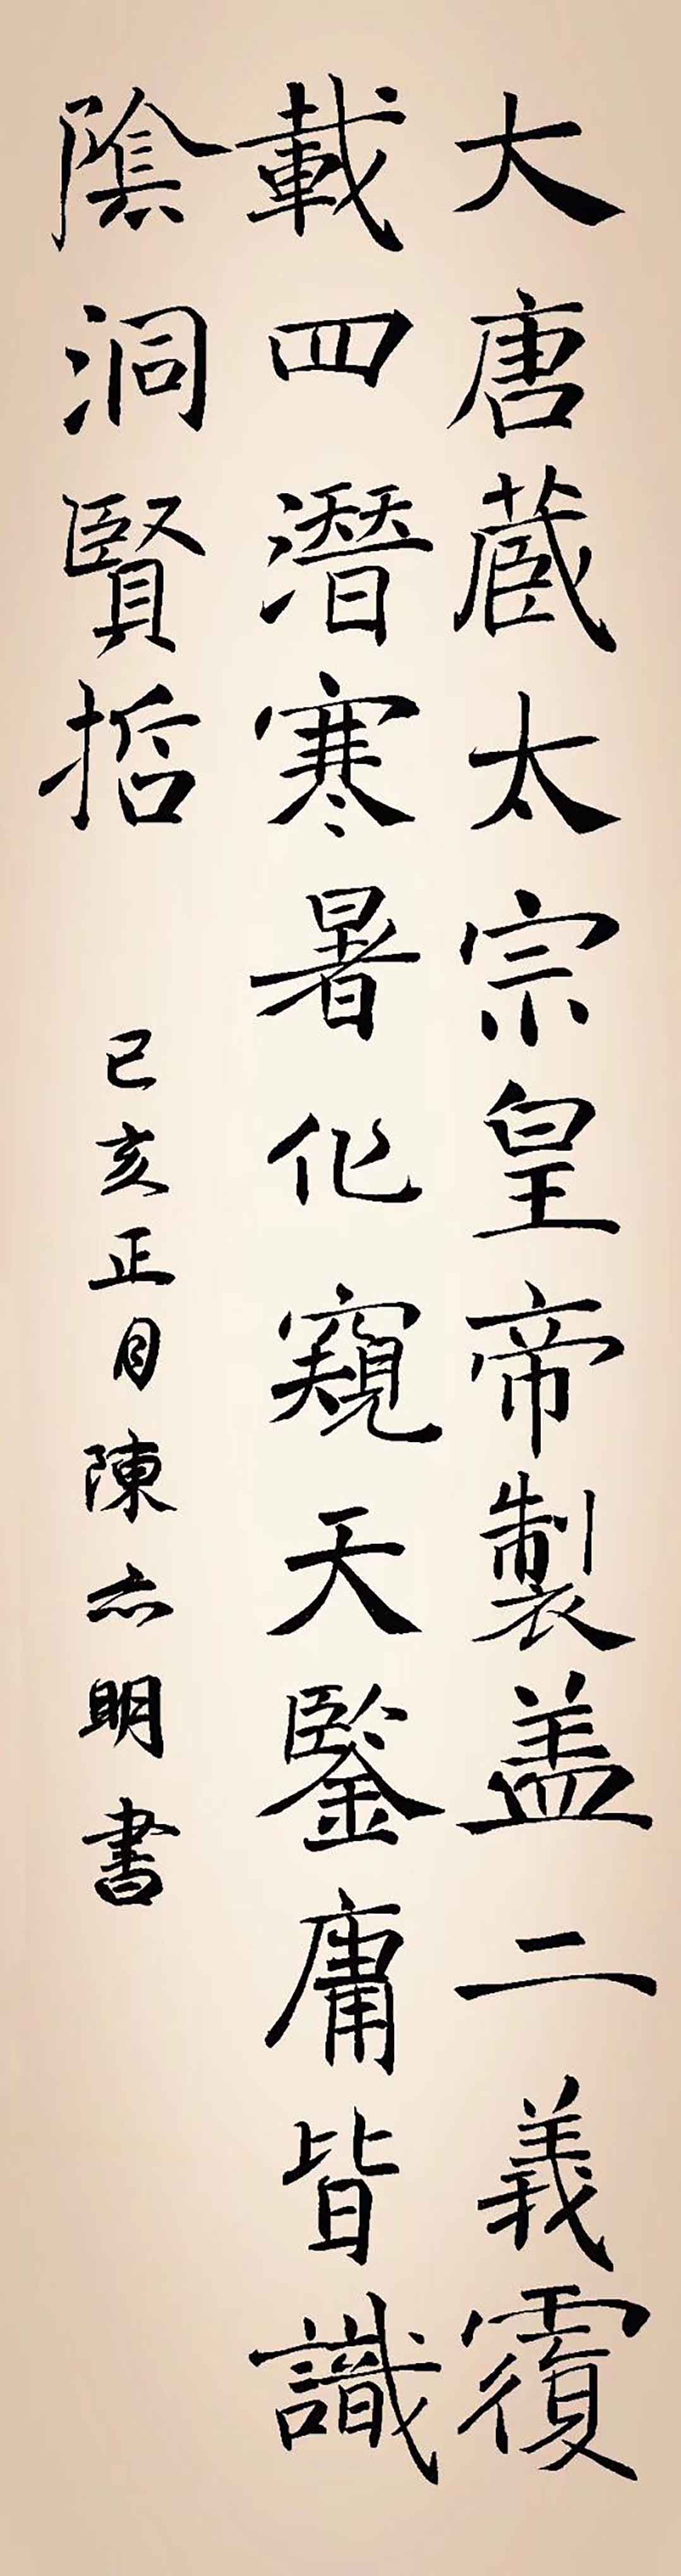 大唐蔵太宗皇帝製盖二義覆
載四潛寒暑化窺天鑒庸皆識
陰洞賢哲
己亥正月陳亦明書